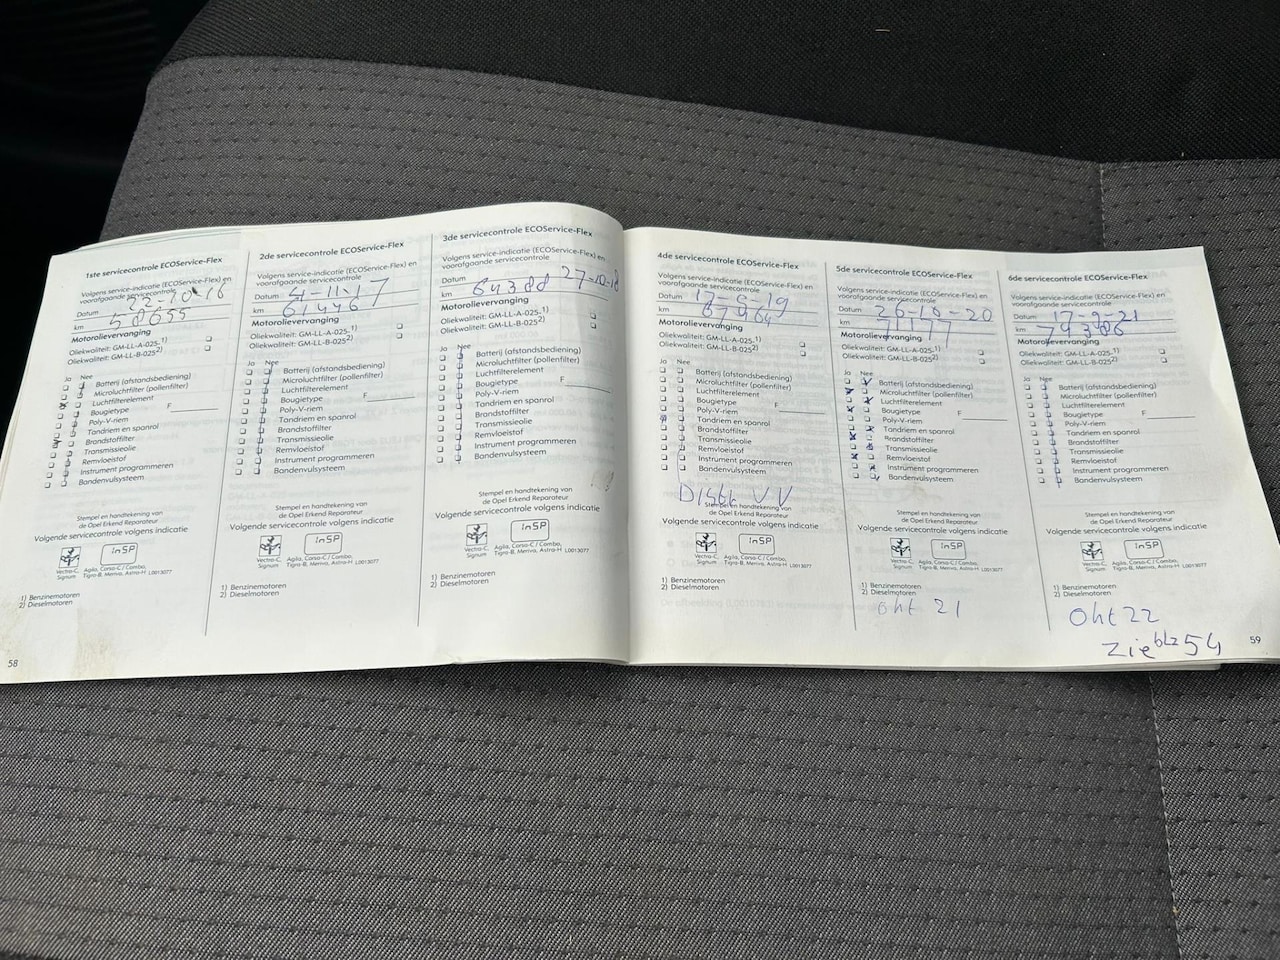 1ste servicecontrole ECOService-Flex
Volgens service-indicatie (ECOService-Flex) en
voorafgaande servicecontrole
Datum 22-10-16
km 58655
Motorolievervanging
Oliekwaliteit: GM-LL-A-025 1)
Oliekwaliteit: GM-LL-B-025 2)
Ja Nee
Batterij (afstandsbediening)
Microluchtfilter (pollenfilter)
Luchtfilterelement
Bougietype F
Poly-V-riem
Tandriem en spanrol
Brandstoffilter
Transmissieolie
Remvloeistof
Instrument programmeren
Bandenvulsysteem
Stempel en handtekening van
de Opel Erkend Reparateur
Volgende servicecontrole volgens indicatie
InSP
Vectra-C, Signum
Agila, Corsa-C / Combo,
Tigra-B, Meriva, Astra-H L0013077
1) Benzinemotoren
2) Dieselmotoren
58
2de servicecontrole ECOService-Flex
Volgens service-indicatie (ECOService-Flex) en
voorafgaande servicecontrole
Datum 21-11-17
km 61446
Motorolievervanging
Oliekwaliteit: GM-LL-A-025 1)
Oliekwaliteit: GM-LL-B-025 2)
Ja Nee
Batterij (afstandsbediening)
Microluchtfilter (pollenfilter)
Luchtfilterelement
Bougietype F
Poly-V-riem
Tandriem en spanrol
Brandstoffilter
Transmissieolie
Remvloeistof
Instrument programmeren
Bandenvulsysteem
Stempel en handtekening van
de Opel Erkend Reparateur
Volgende servicecontrole volgens indicatie
InSP
Vectra-C, Signum
Agila, Corsa-C / Combo,
Tigra-B, Meriva, Astra-H L0013077
1) Benzinemotoren
2) Dieselmotoren
3de servicecontrole ECOService-Flex
Volgens service-indicatie (ECOService-Flex) en
voorafgaande servicecontrole
Datum 27-10-18
km 64388
Motorolievervanging
Oliekwaliteit: GM-LL-A-025 1)
Oliekwaliteit: GM-LL-B-025 2)
Ja Nee
Batterij (afstandsbediening)
Microluchtfilter (pollenfilter)
Luchtfilterelement
Bougietype F
Poly-V-riem
Tandriem en spanrol
Brandstoffilter
Transmissieolie
Remvloeistof
Instrument programmeren
Bandenvulsysteem
Stempel en handtekening van
de Opel Erkend Reparateur
Volgende servicecontrole volgens indicatie
InSP
Vectra-C, Signum
Agila, Corsa-C / Combo,
Tigra-B, Meriva, Astra-H L0013077
1) Benzinemotoren
2) Dieselmotoren
4de servicecontrole ECOService-Flex
Volgens service-indicatie (ECOService-Flex) en
voorafgaande servicecontrole
Datum 17-9-19
km 67964
Motorolievervanging
Oliekwaliteit: GM-LL-A-025 1)
Oliekwaliteit: GM-LL-B-025 2)
Ja Nee
Batterij (afstandsbediening)
Microluchtfilter (pollenfilter)
Luchtfilterelement
Bougietype F
Poly-V-riem
Tandriem en spanrol
Brandstoffilter
Transmissieolie
Remvloeistof
Instrument programmeren
Bandenvulsysteem
Distr VV
Stempel en handtekening van
de Opel Erkend Reparateur
Volgende servicecontrole volgens indicatie
InSP
Vectra-C, Signum
Agila, Corsa-C / Combo,
Tigra-B, Meriva, Astra-H L0013077
1) Benzinemotoren
2) Dieselmotoren
5de servicecontrole ECOService-Flex
Volgens service-indicatie (ECOService-Flex) en
voorafgaande servicecontrole
Datum 26-10-20
km 71177
Motorolievervanging
Oliekwaliteit: GM-LL-A-025 1)
Oliekwaliteit: GM-LL-B-025 2)
Ja Nee
Batterij (afstandsbediening)
Microluchtfilter (pollenfilter)
Luchtfilterelement
Bougietype F
Poly-V-riem
Tandriem en spanrol
Brandstoffilter
Transmissieolie
Remvloeistof
Instrument programmeren
Bandenvulsysteem
Stempel en handtekening van
de Opel Erkend Reparateur
Volgende servicecontrole volgens indicatie
InSP
Vectra-C, Signum
Agila, Corsa-C / Combo,
Tigra-B, Meriva, Astra-H L0013077
1) Benzinemotoren
2) Dieselmotoren
Okt 21
6de servicecontrole ECOService-Flex
Volgens service-indicatie (ECOService-Flex) en
voorafgaande servicecontrole
Datum 17-9-21
km 74386
Motorolievervanging
Oliekwaliteit: GM-LL-A-025 1)
Oliekwaliteit: GM-LL-B-025 2)
Ja Nee
Batterij (afstandsbediening)
Microluchtfilter (pollenfilter)
Luchtfilterelement
Bougietype F
Poly-V-riem
Tandriem en spanrol
Brandstoffilter
Transmissieolie
Remvloeistof
Instrument programmeren
Bandenvulsysteem
Stempel en handtekening van
de Opel Erkend Reparateur
Volgende servicecontrole volgens indicatie
InSP
Vectra-C, Signum
Agila, Corsa-C / Combo,
Tigra-B, Meriva, Astra-H L0013077
1) Benzinemotoren
2) Dieselmotoren
Okt 22
Zie blz 54
59